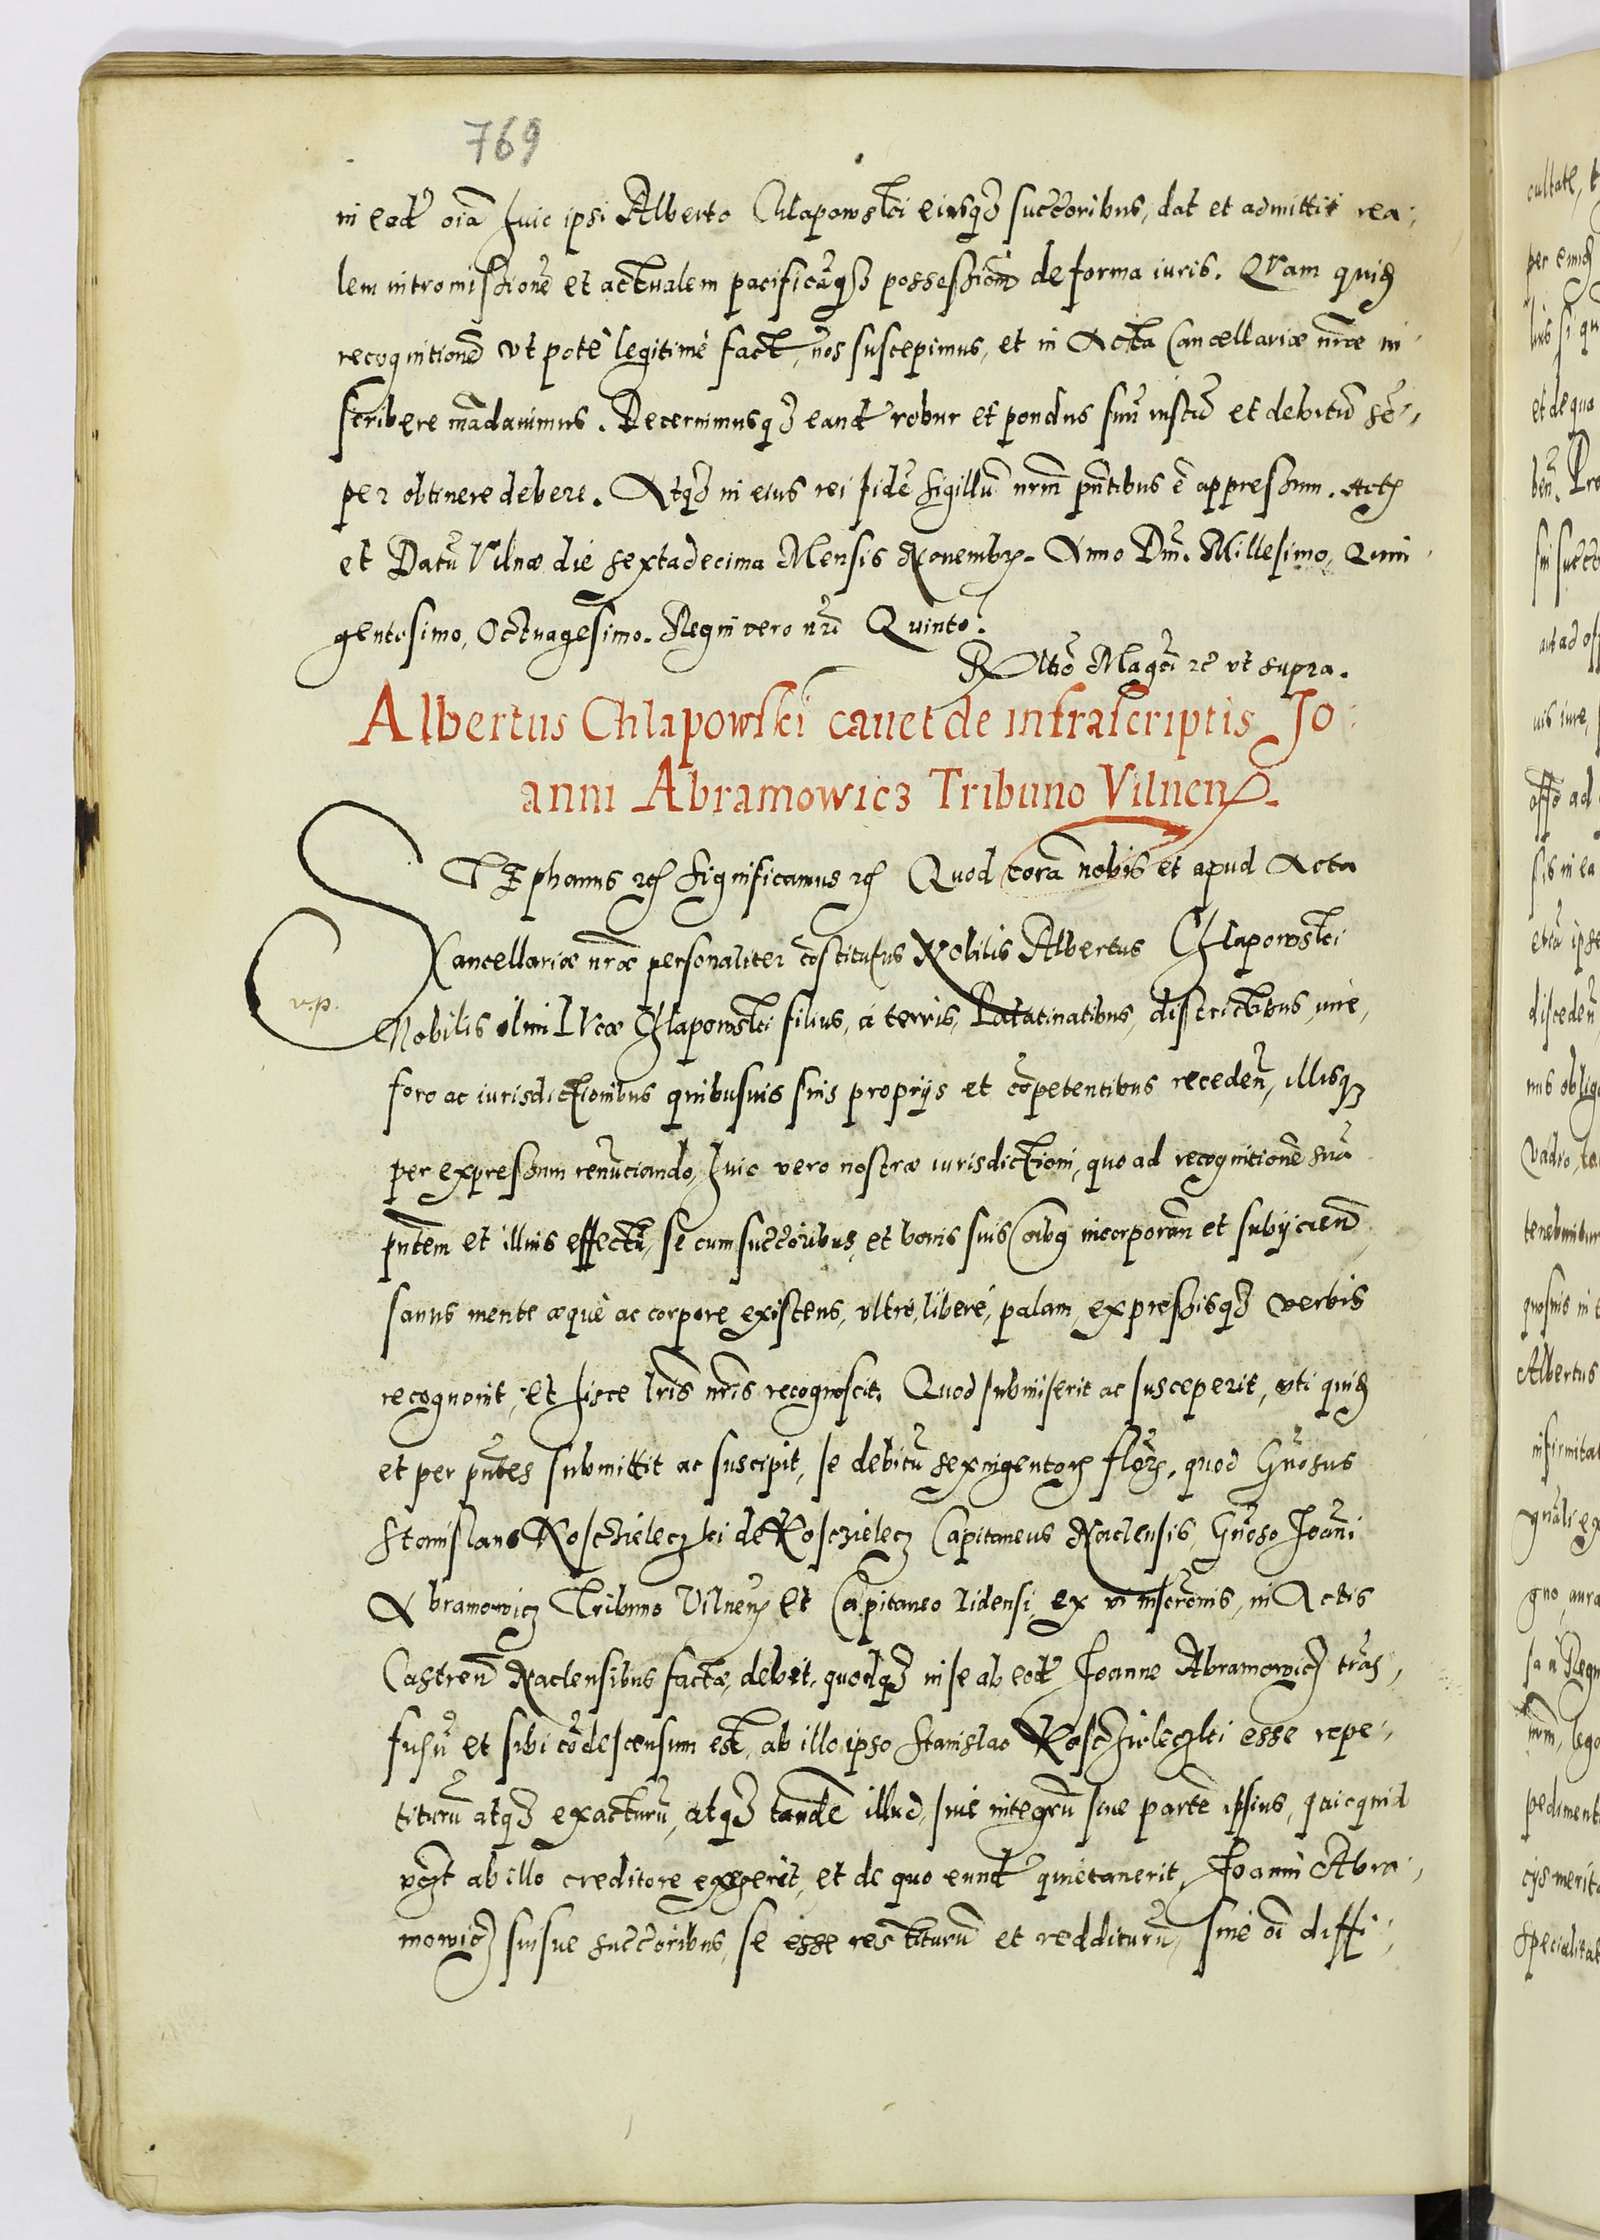 769
in eod oia huic ipsi Alberto Chlapowski eiusq₃ succoribus, dat et admittit rea-
lem intromissione et actualem pacificaq₃ possession de forma iuris. Quam quid
recognitione ut pote legitime fact, nos suscepimus, et in Acta Cancellariæ nrae in-
scribere madavimus. Decernimusq₃ eand robur et pondus suu iustu et debitu se-
per obtinere debere. Atq₃ in eius rei fide sigillu nrm pntibus e appressum. Act
et Datu Vilnæ die sextadecima Mensis Novembr. Anno Dni. Millesimo, Quin-
gentesimo, Octuagesimo. Regni vero nri Quinto.
Rltio Magci rc ut supra.
Albertus Chlapowski cavet de infrascriptis Jo-
anni Abramowicz Tribuno Vilnen.
STEphanus rc Significamus rc Quod cora nobis et apud Acta
Cancellariæ nræ personaliter costitutus Nobilis Albertus Chlapowski
vip.
Nobilis olim Lucæ Chlapowski filius, a terris, Palatinatibus, districtibus, iure,
foro ac iurisdictionibus quibusvis suis proprijs et copetentibus receden, illisq₃
per expressum renuciando, huic vero nostræ iurisdictioni, quo ad recognitione sua
pntem et illius effectu, se cum succoribus et bonis suis oibq incorporan et subijciend
sanus mente æquè ac corpore existens, ultro, liberè, palam, expressisq₃ verbis
recognovit, et hisce lris nris recognoscit. Quod submiserit ac susceperit, uti quid
et per pntes submittit ac suscipit, se debitu sexingentor flor, quod Gnosus
Stanislaus Koschieleczki de Koschielecz Capitaneus Naclensis, Gnoso Joani
Abramowicz Tribuno Vilnen et Capitaneo lidensi, ex vi inscronis, in Actis
Castren Naclensibus factæ, debet, quodq₃ in se ab eod Joanne Abramowicz tras-
fusu et sibi codescensum est, ab illo ipso Stanislao Koschieleczki esse repe-
tituru atq₃ exacturu, atq₃ tande illud, sive integru sive parte ipsius, quicquid
ab illo creditore exegerit, et de quo eund quietaverit, Joanni Abra-
mowicz suisve succoribus, se esse restituturu et redditurum, sine oi diffi-